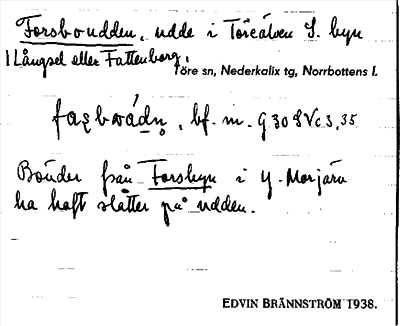 Forsboudden, udde i Töreälven S. byn
i Långsel eller Fattenborg.
Töre sn, Nederkalix tg, Norrbottens l.
bf. m. G 30 8 V c 3, 35
Bönder från Forsbyn i Y. Morjärv
ha haft slåtter på udden.
EDVIN BRÄNNSTRÖM 1938.